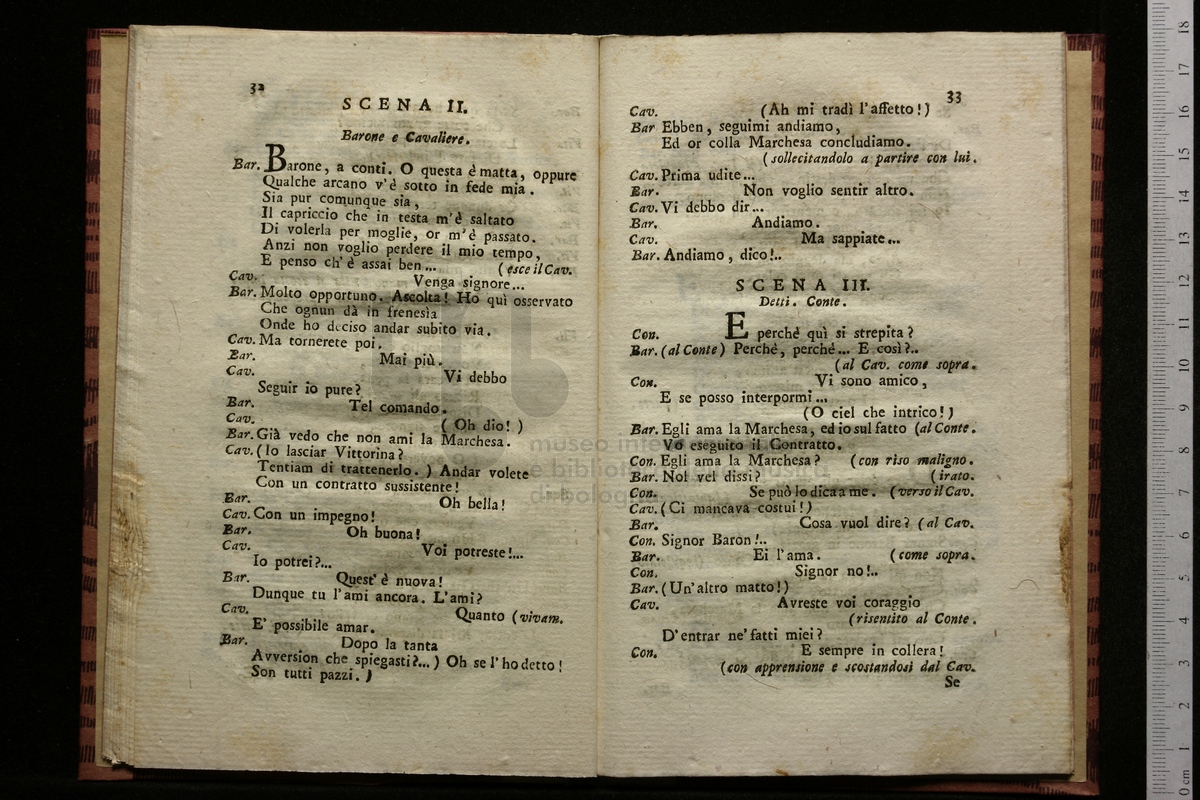 32
SCENA II.
Barone e Cavaliere.
Bar. Barone, a conti. O questa è matta, oppure
Qualche arcano v'è sotto in fede mia.
Sia pur comunque sia,
Il capriccio che in testa m'è saltato
Di volerla per moglie, or m'è passato.
Anzi non voglio perdere il mio tempo,
E penso ch'è assai ben... (esce il Cav.
Cav. Venga signore...
Bar. Molto opportuno. Ascolta! Ho quì osservato
Che ognun dà in frenesìa
Onde ho deciso andar subito via.
Cav. Ma tornerete poi.
Bar. Mai più.
Cav. Vi debbo
Seguir io pure?
Bar. Tel comando.
Cav. (Oh dio!)
Bar. Già vedo che non ami la Marchesa.
Cav. (Io lasciar Vittorina?
Tentiam di trattenerlo.) Andar volete
Con un contratto sussistente!
Bar. Oh bella!
Cav. Con un impegno!
Bar. Oh buona!
Cav. Voi potreste!...
Io potrei?...
Bar. Quest'è nuova!
Dunque tu l'ami ancora. L'ami?
Cav. Quanto (vivam.
E' possibile amar.
Bar. Dopo la tanta
Avversion che spiegasti?...) Oh se l'ho detto!
Son tutti pazzi.)
33
Cav. (Ah mi tradì l'affetto!)
Bar Ebben, seguimi andiamo,
Ed or colla Marchesa concludiamo.
(sollecitandolo a partire con lui.
Cav. Prima udite...
Bar. Non voglio sentir altro.
Cav. Vi debbo dir...
Bar. Andiamo.
Cav. Ma sappiate...
Bar. Andiamo, dico!..
SCENA III.
Detti. Conte.
Con. E perchè quì si strepita?
Bar. (al Conte) Perchè, perchè... E così?..
(al Cav. come sopra.
Con. Vi sono amico,
E se posso interpormi...
(O ciel che intrico!)
Bar. Egli ama la Marchesa, ed io sul fatto (al Conte.
Vò eseguito il Contratto.
Con. Egli ama la Marchesa? (con riso maligno.
Bar. Nol vel dissi? (irato.
Con. Se può lo dica a me. (verso il Cav.
Cav. (Ci mancava costui!)
Bar. Cosa vuol dire? (al Cav.
Con. Signor Baron!..
Bar. Ei l'ama. (come sopra.
Con. Signor no!..
Bar. (Un'altro matto!)
Cav. Avreste voi coraggio
(risentito al Conte.
D'entrar ne' fatti miei?
Con. E sempre in collera!
(con apprensione e scostandosi dal Cav.
Se